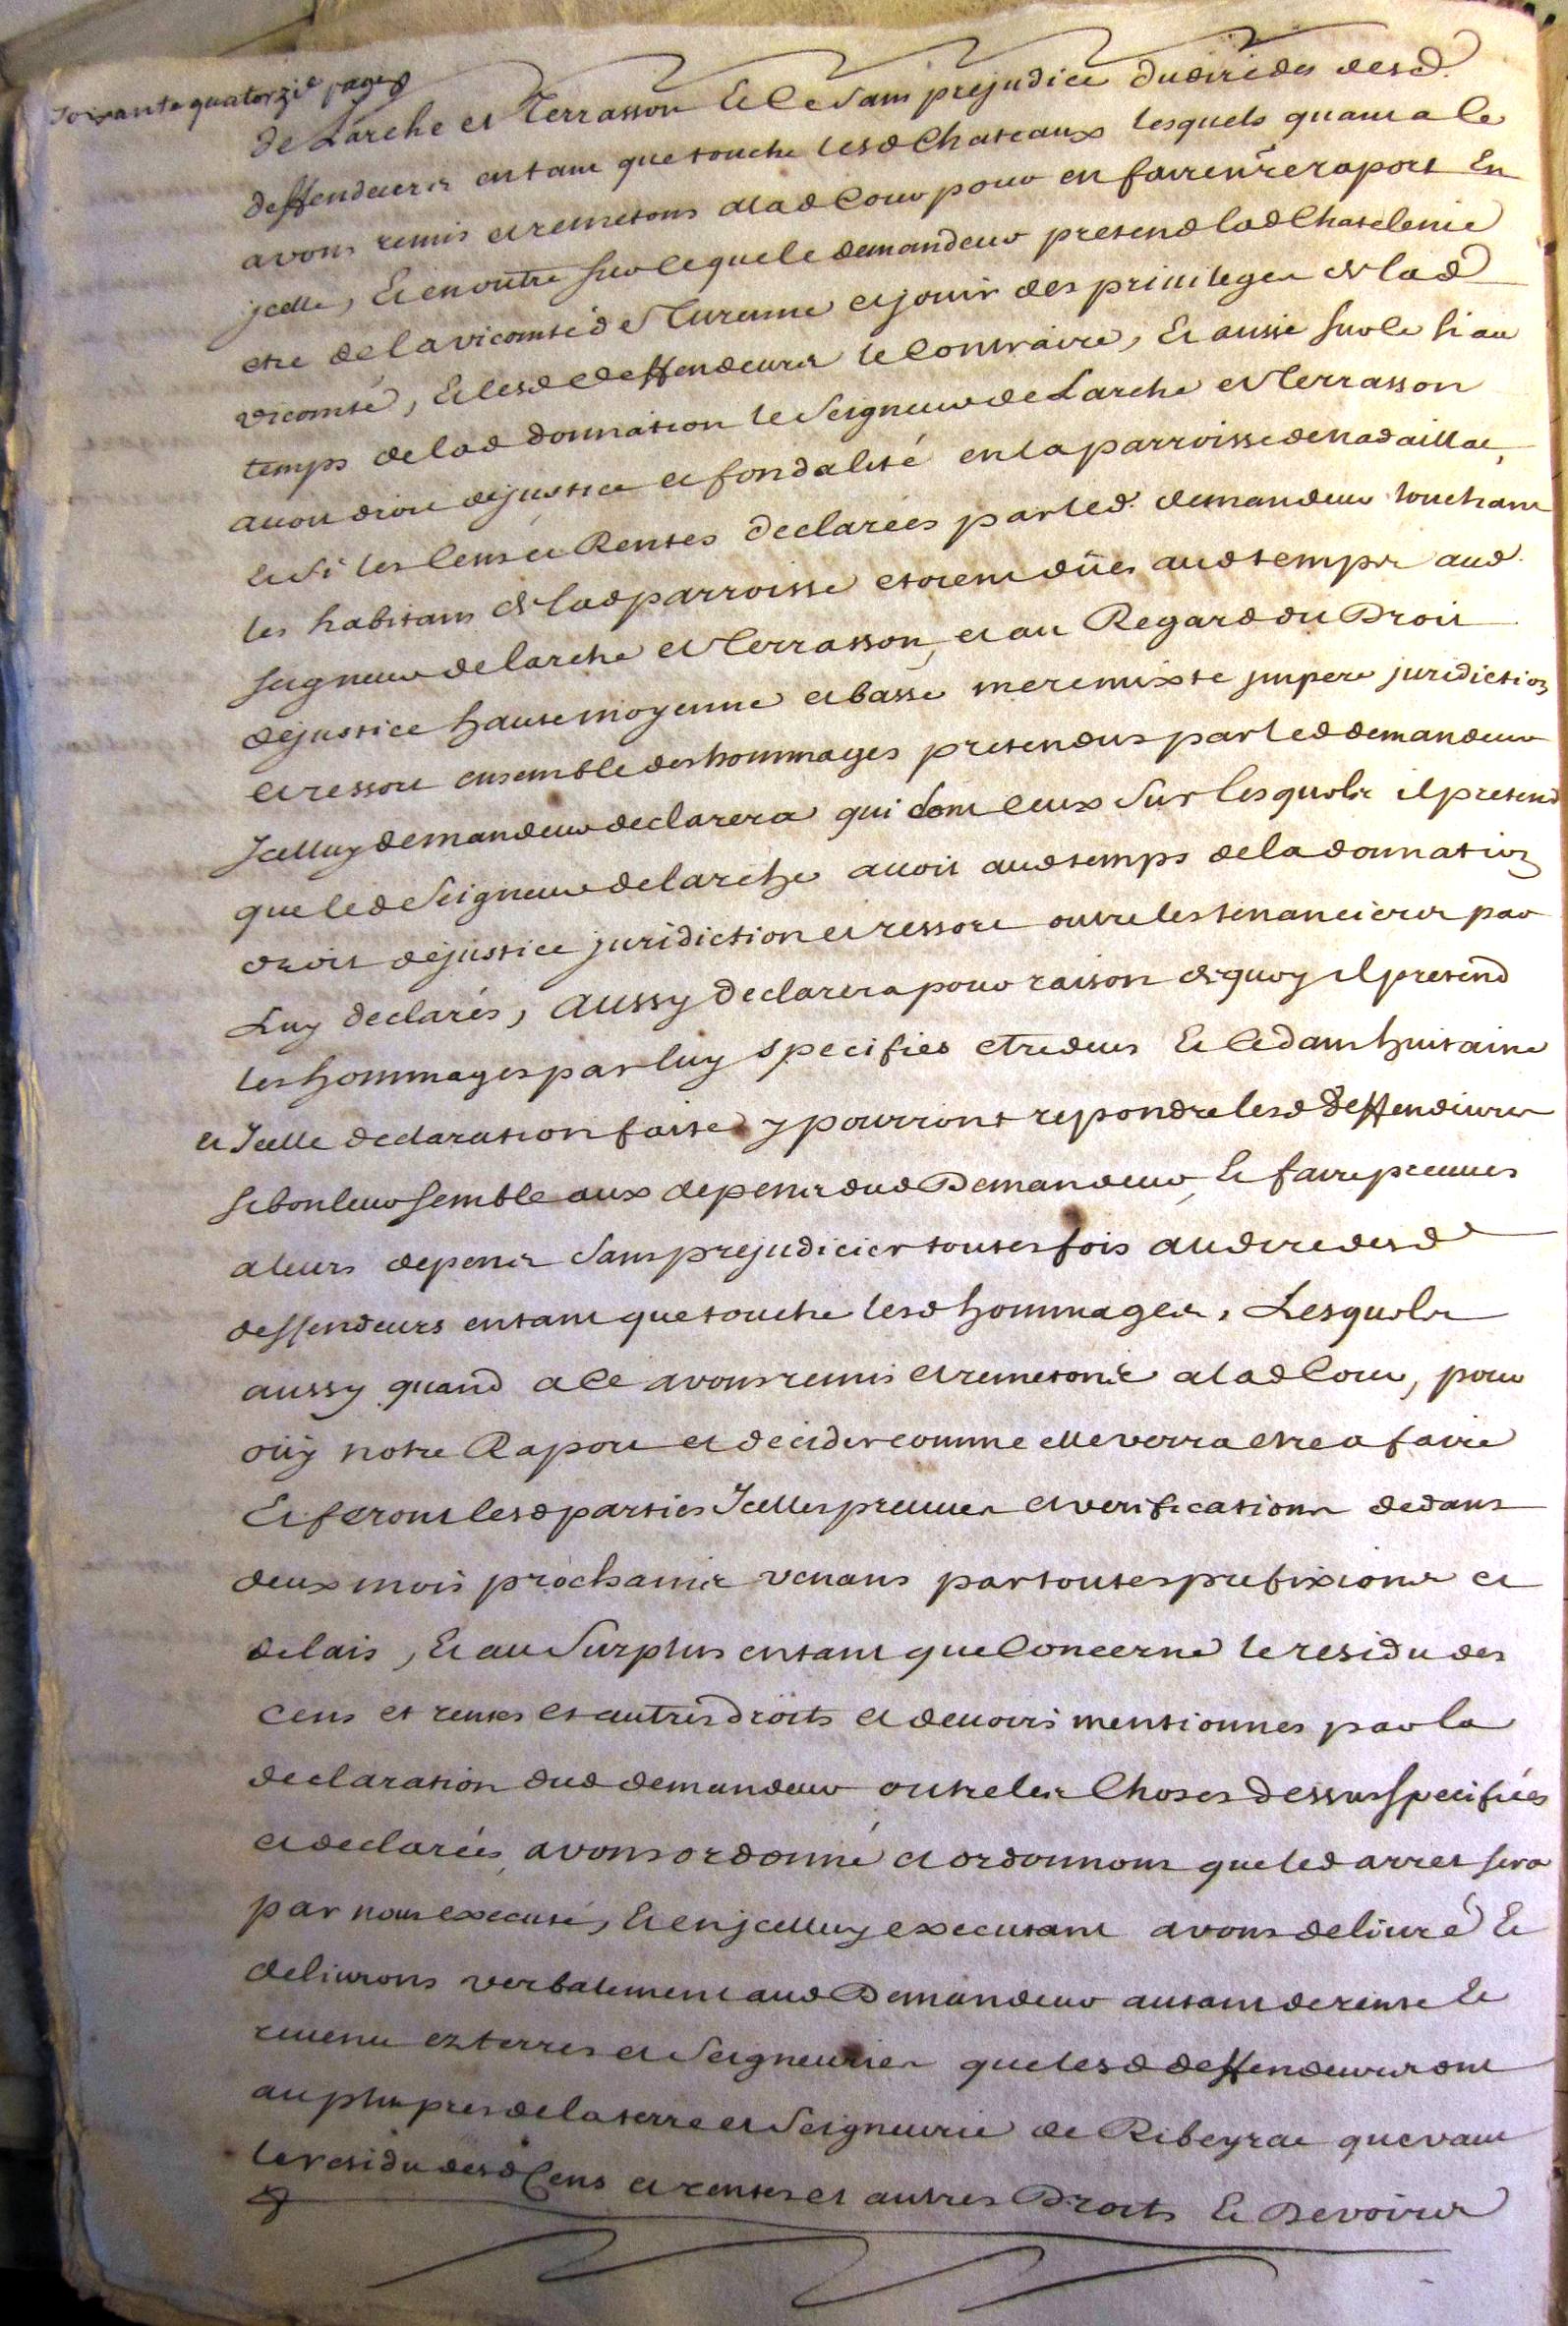 soixante quatorzie page
de Larche et Terrasson Et Ce sans prejudice du dire des desd.
deffendeurs en tant que touche lesd Chateaux lesquels quant a ce
avons remis et remetons a lad Cour pour en faire nre raport En
jcelle, Et en outre sur ce que le demandeur pretend lad Chatelenie
etre de la vicomté de Turenne et jouir des privileges de lad
vicomté, Et lesd deffendeurs le Contraire, Et aussi sur ce si au
temps de lad donnation le Seigneur de Larche et Terrasson
avoit droit de justice et fondalité en la parroisse de nadaillac,
Et si les Cens et Rentes declarées par led. demandeur touchant
les habitans de lad parroisse etoient dües aud temps aud.
seigneur de larche et Terrasson, et au Regard du Droit
de justice haute moyenne et basse mere mixte jmpere juridiction
et ressort ensemble des hommages pretendus par led demandeur
Jcelluy demandeur declarera qui sont Ceux sur lesquels il pretend
que led Seigneur de larche avoit aud temps de la donnation
droit de justice juridiction et ressort outre les tenanciers par
Luy declarés, aussy declarera pour raison de quoy il pretend
les hommages par luy specifiés etre deus Et Ce dans huitaine
et Jcelle declaration faite y pourront repondre lesd deffendeurs
si bon leur semble aux depens dud Demandeur, Et faire preuves
a leurs depens sans prejudicier toutes fois au dire desd
deffendeurs en tant que touche lesd hommages, Lesquels
aussy quand a Ce avons remis et remetons a lad Cour, pour
oüy notre Raport et decider comme elle verra etre a faire
Et feront lesd parties Jcelles preuves et verifications dedans
deux mois prochains venans par toutes prefixions et
delais, Et au Surplus en tant que Concerne le residu des
Cens et rentes et autres droits et devoirs mentionnes par la
declaration dud demandeur outre les Choses dessus specifiées
et declarées, avons ordonné et ordonnons que led arret sera
par nous executé, Et en jcelluy executant avons delivré Et
delivrons verbalement aud Demandeur autant de rente Et
revenu ez terres et Seigneuries que lesd deffendeurs ont
au plus pres de la terre et Seigneurie de Ribeyrac que vaut
le residu desd Cens et rentes et autres Droits Et Devoirs